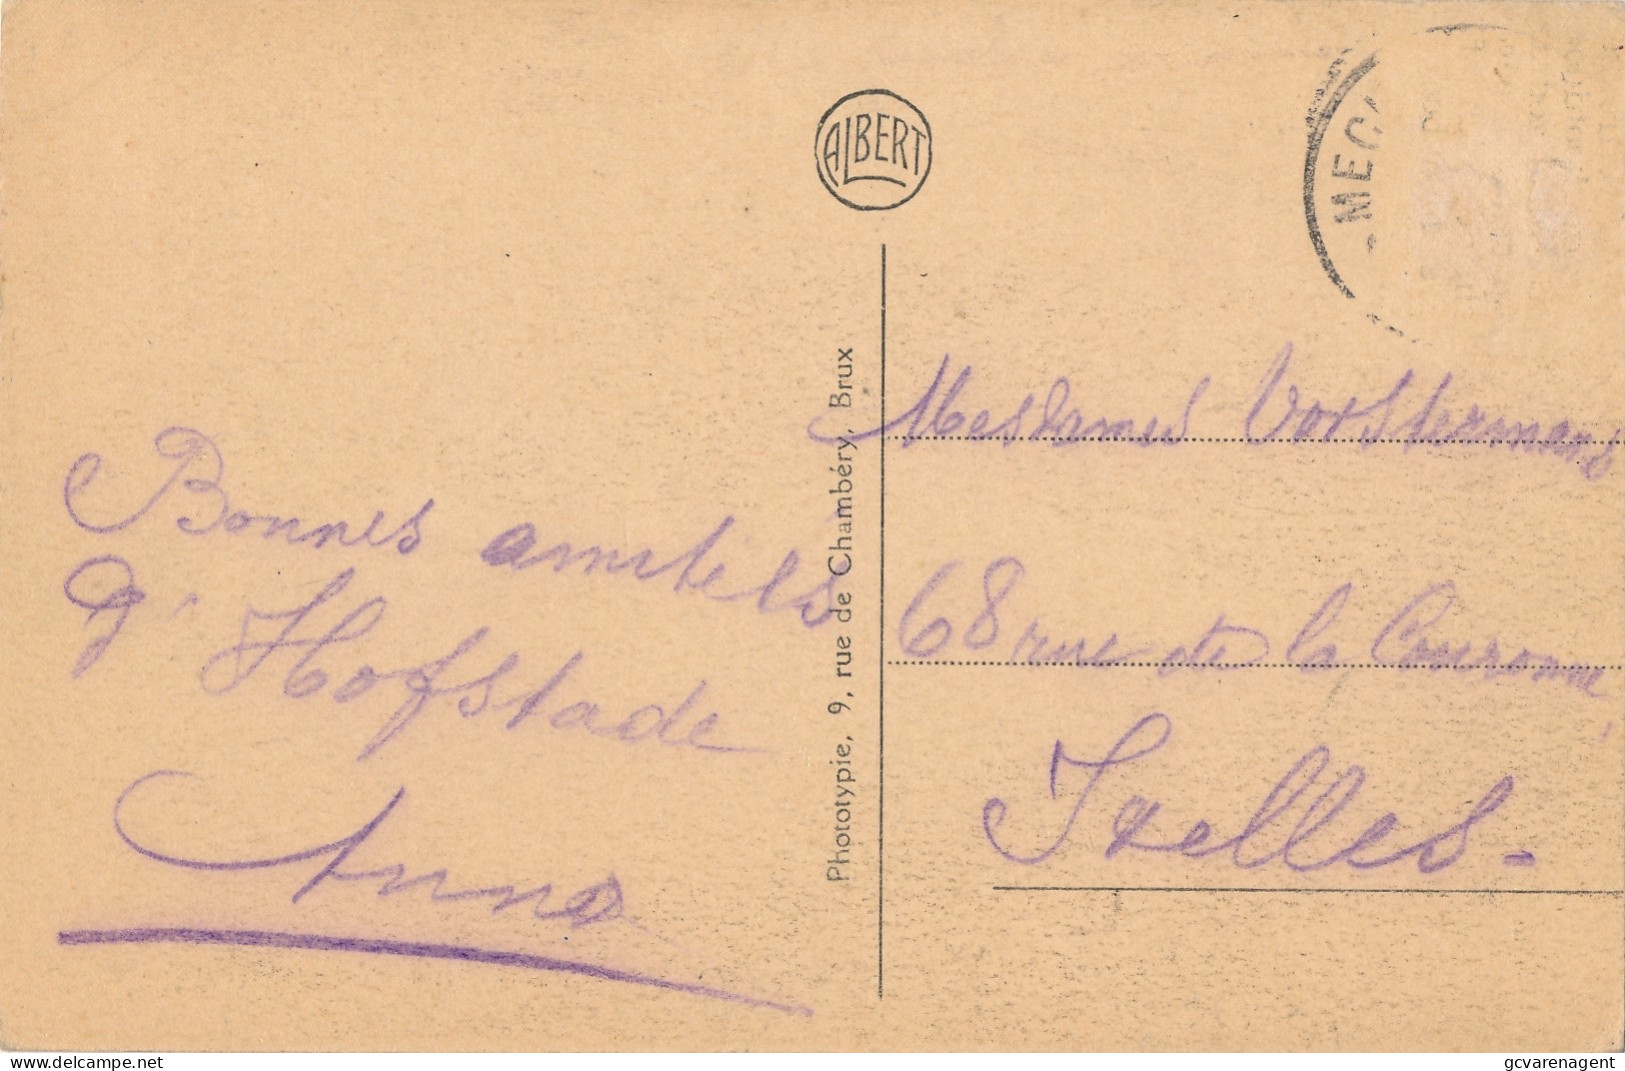 ALBERT
-MEC
Bonnes amitiés
d'Hofstade
Anna
Phototypie, 9, rue de Chambéry, Brux
Mesdames Vorstermans
68 rue de la Couronne,
Ixelles-
www.delcampe.net
gcvarenagent